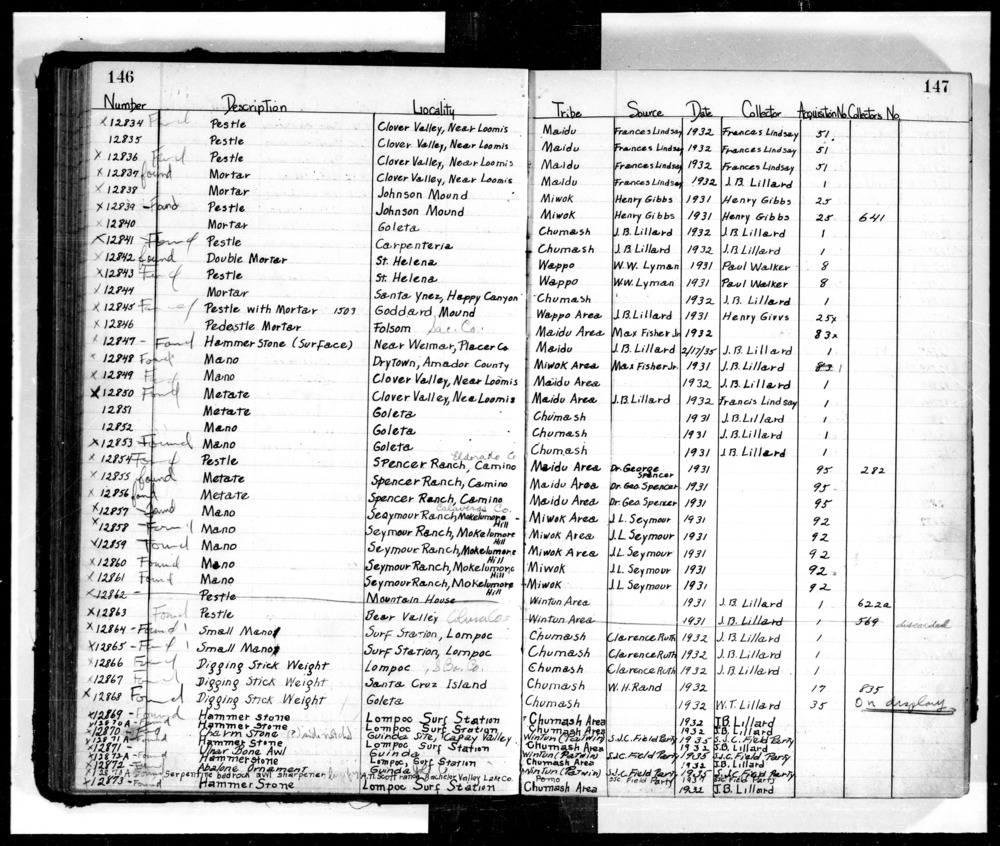 146
147
Number Description Locality Tribe Source Date Collector Aquisition No. Collectors No.
x12834 Found Pestle Clover Valley, Near Loomis Maidu Frances Lindsay 1932 Frances Lindsay 51
12835 Pestle Clover Valley, Near Loomis Maidu Frances Lindsay 1932 Frances Lindsay 51
x12836 Found Pestle Clover Valley, Near Loomis Maidu Frances Lindsay 1932 Frances Lindsay 51
x12837 found Mortar Clover Valley, Near Loomis Maidu Frances Lindsay 1932 J.B. Lillard 1
x12838 Mortar Johnson Mound Miwok Henry Gibbs 1931 Henry Gibbs 25
x12839 - Found Pestle Johnson Mound Miwok Henry Gibbs 1931 Henry Gibbs 25 641
x12840 Mortar Goleta Chumash J.B. Lillard 1932 J.B. Lillard 1
x12841 - Found Pestle Carpenteria Chumash J.B. Lillard 1932 J.B. Lillard 1
x12842 found Double Mortar St. Helena Wappo W.W. Lyman 1931 Paul Walker 8
x12843 Found Pestle St. Helena Wappo W.W. Lyman 1931 Paul Walker 8
x12844 Mortar Santa Ynez, Happy Canyon Chumash 1932 J.B. Lillard 1
x12845 Found Pestle with Mortar 1503 Goddard Mound Wappo Area J.B. Lillard 1931 Henry Givvs 25x
x12846 Pedestle Mortar Folsom Sac. Co. Maidu Area Max Fisher Jr. 1932 83x
x12847 - Found Hammer Stone (Surface) Near Weimar, Placer Co Maidu J.B. Lillard 2/17/35 J.B. Lillard 1
x12848 Found Mano Drytown, Amador County Miwok Area Max Fisher Jr. 1931 J.B. Lillard 83 1
x12849 Found Mano Clover Valley, Near Loomis Maidu Area 1932 J.B. Lillard 1
x12850 Found Metate Clover Valley, Near Loomis Maidu Area J.B. Lillard 1932 Francis Lindsay 1
12851 Metate Goleta Chumash 1931 J.B. Lillard 1
12852 Mano Goleta Chumash 1931 J.B. Lillard 1
x12853 - Found Mano Goleta Chumash 1931 J.B. Lillard 1
x12854 Found Pestle Spencer Ranch, Camino Eldorado Co Maidu Area Dr. George Spencer 1931 95 282
x12855 found Metate Spencer Ranch, Camino Maidu Area Dr. Geo. Spencer 1931 95
x12856 found Metate Spencer Ranch, Camino Maidu Area Dr. Geo. Spencer 1931 95
x12857 - Found Mano Seaymour Ranch, Mokelumore Hill Calaveras Co. Miwok Area J.L. Seymour 1931 92
x12858 - Found Mano Seymour Ranch, Mokelumore Hill Miwok Area J.L. Seymour 1931 92
x12859 Found Mano Seymour Ranch, Mokelumore Hill Miwok Area J.L. Seymour 1931 92
x12860 Found Mano Seymour Ranch, Mokelumore Hill Miwok J.L. Seymour 1931 92
x12861 Found Mano Seymour Ranch, Mokelumore Hill Miwok J.L. Seymour 1931 92
x12862 - Pestle Mountain House Wintun Area 1931 J.B. Lillard 1 622a
x12863 Found Pestle Bear Valley Colusa Co. Wintun Area 1931 J.B. Lillard 1 569 discarded
x12864 - Found Small Mano Surf Station, Lompoc Chumash Clarence Ruth 1932 J.B. Lillard 1
x12865 - Found Small Mano Surf Station, Lompoc Chumash Clarence Ruth 1932 J.B. Lillard 1
x12866 Found Digging Stick Weight Lompoc, S.Bar. Co. Chumash Clarence Ruth 1932 J.B. Lillard 1
x12867 Found Digging Stick Weight Santa Cruz Island Chumash W.H. Rand 1932 17 835
x12868 Found Digging Stick Weight Goleta Chumash 1932 W.T. Lillard 35 On display
x12869 - Found Hammer stone Lompoc Surf Station Chumash Area 1932 J.B. Lillard
x13870A - Hammer Stone Lompoc Surf Station Chumash Area 1932 J.B. Lillard
x12870 Found Charm Stone Guinda Site, Capay Valley Wintun (Patwin) S.J.C. Field Party 1935 S.J.C. Field Party
x13871A Hammer Stone Lompoc Surf Station Chumash Area 1932 J.B. Lillard
x12871 - Char Bone Awl Guinda Wintun (Patwin) S.J.C. Field Party 1935 S.J.C. Field Party
x13872A - Found Hammer Stone Lompoc, Surf Station Chumash Area 1932 J.B. Lillard
x12872 - Abalone Ornament Guinda Wintun (Patwin) S.J.C. Field Party 1935 S.J.C. Field Party
x12873A Found Serpentine bedrock awl sharpener A.M. Scott ranch, Bachelor Valley Lake Co. Pomo SJC Field Party 1937 SJC Field Party
x12873 - Found Hammer Stone Lompoc Surf Station Chumash Area 1932 J.B. Lillard